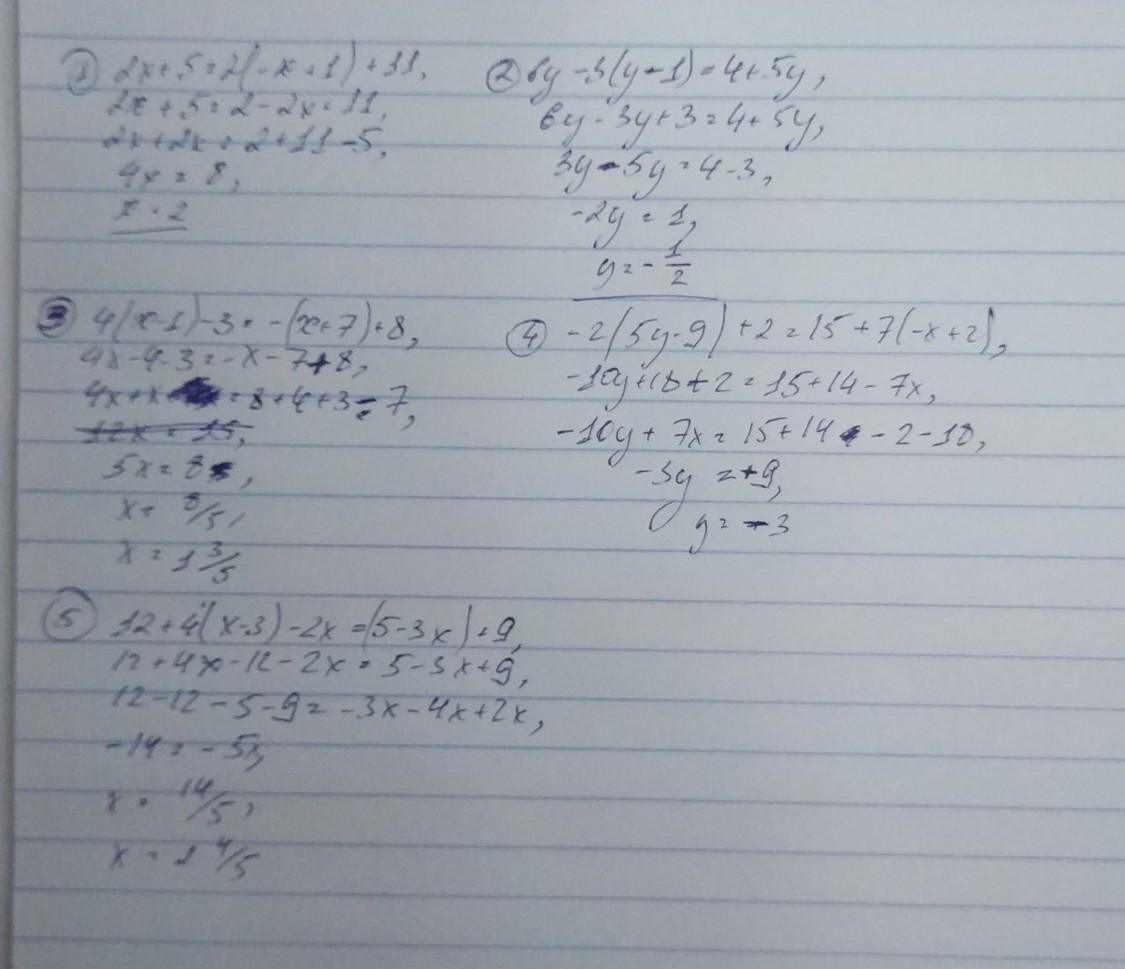 ① 2x+5=2(-x+1)+11,
2x+5=2-2x+11,
2x+2x=2+11-5,
4x=8,
x=2
② 6y-3(y-1)=4+5y,
6y-3y+3=4+5y,
3y-5y=4-3,
-2y=1,
y=-1/2
③ 4(x-1)-3=-(x+7)+8,
4x-4-3=-x-7+8,
4x+x=8+4+3-7,
12x=15,
5x=8,
x=8/5,
x=1 3/5
④ -2(5y-9)+2=15+7(-x+2),
-10y+18+2=15+14-7x,
-10y+7x=15+14-2-18,
-3y=+9,
y=-3
⑤ 12+4(x-3)-2x=(5-3x)+9,
12+4x-12-2x=5-3x+9,
12-12-5-9=-3x-4x+2x,
-14=-5x,
x=14/5,
x=2 4/5